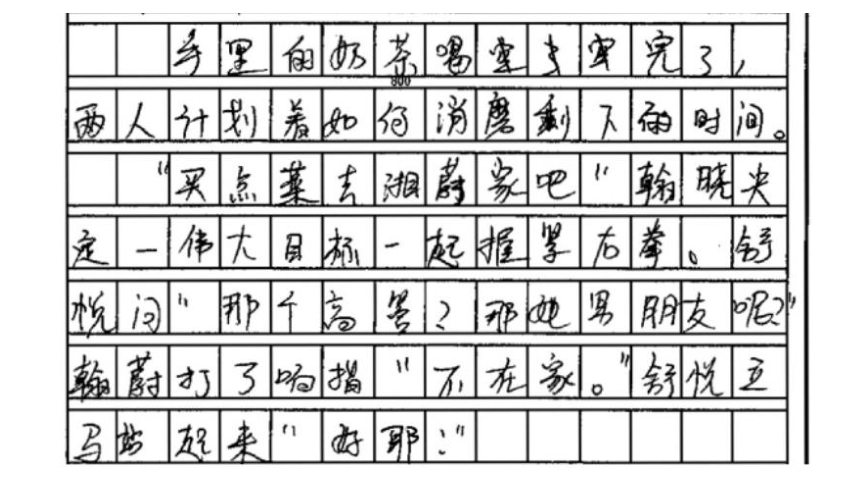 手里的奶茶喝空了空完了，
800
两人计划着如何消磨剩下的时间。
“买点菜去湘蔚家吧”翰晓决
定一伟大目标一起握紧右拳。舒
悦问“那个高署？那她男朋友呢？”
翰蔚打了响指“不在家。”舒悦立
马站起来“好耶！”